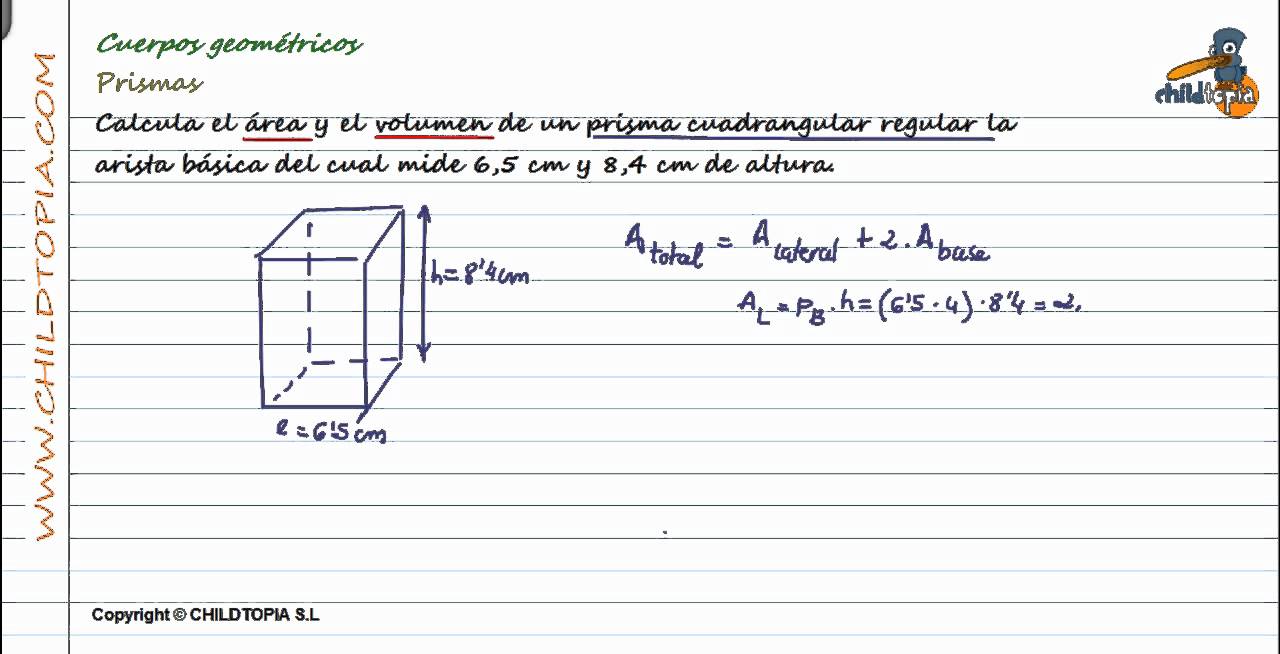 WWW.CHILDTOPIA.COM
Cuerpos geométricos
childtopia
Prismas
Calcula el área y el volumen de un prisma cuadrangular regular la
arista básica del cual mide 6,5 cm y 8,4 cm de altura.
A total = A lateral + 2. A base
h=8'4cm
A L = P B . h = (6'5 · 4) · 8'4 = 2.
l = 6'5 cm
Copyright © CHILDTOPIA S.L